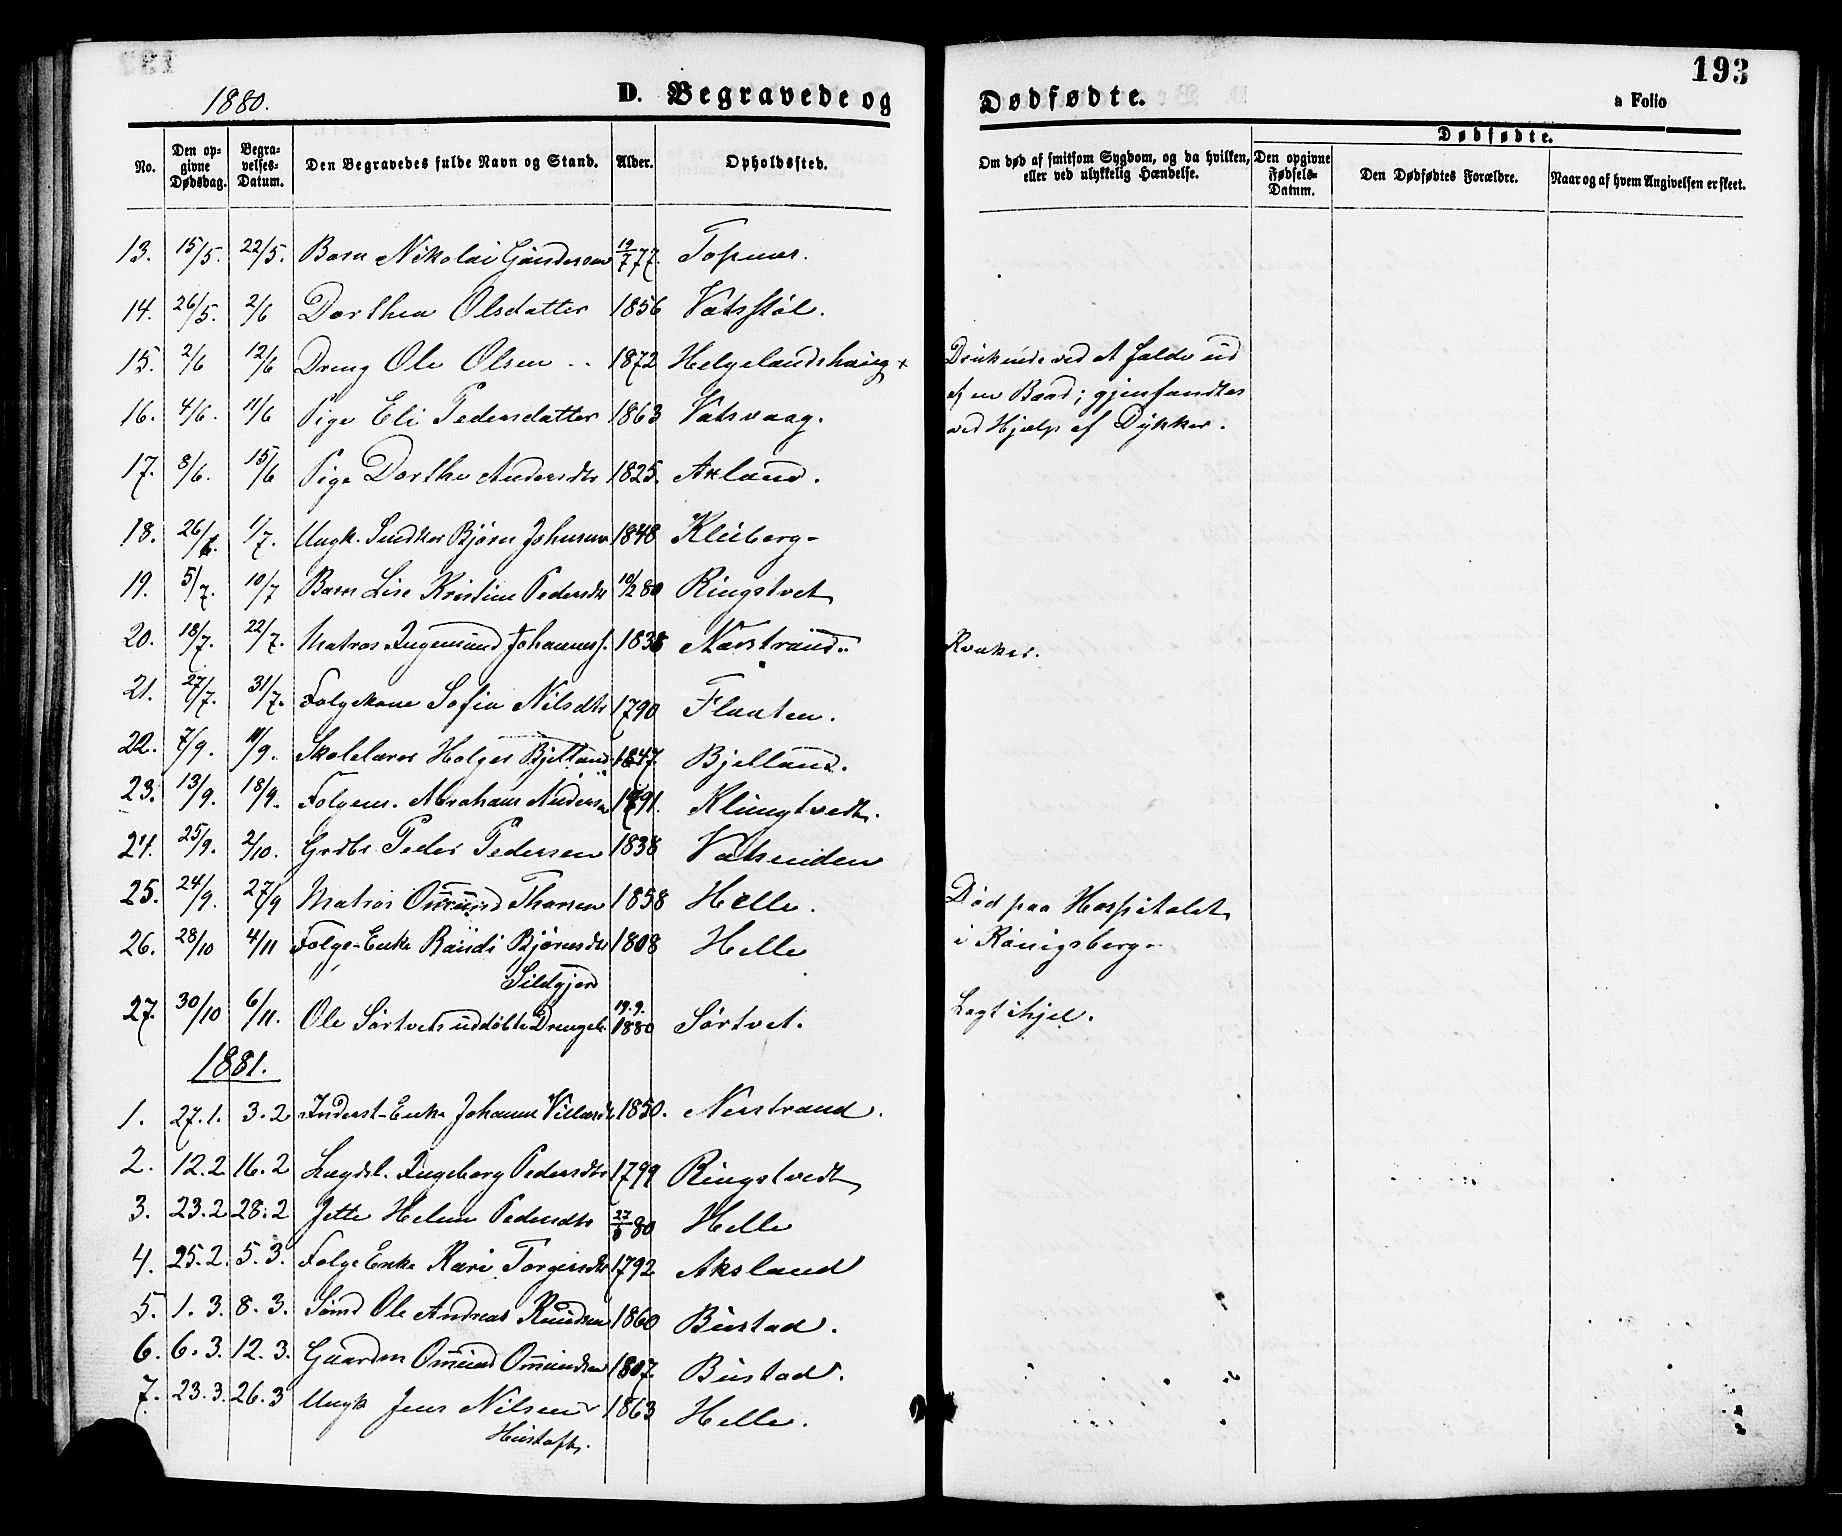 1880.
D. Begravede og
Dødfødte.
193
a Folio
No.
Den opgivne Dødsdag.
Begravelses-Datum.
Den Begravedes fulde Navn og Stand.
Alder.
Opholdssted.
Om død af smitsom Sygdom, og da hvilken, eller ved ulykkelig Hændelse.
Dødfødte.
Den opgivne Fødsels-Datum.
Den Dødfødtes Forældre.
Naar og af hvem Angivelsen er skeet.
13. 15/5. 22/5. Barn Nikolai Gundersen 19/7 77. Topnes.
14. 26/5. 2/6 Dorthea Olsdatter 1856 Vatsstøl.
15. 2/6 12/6 Dreng Ole Olsen 1872 Helgelandshaug + Druknede ved at falde ud
af en Baad; gjenfandtes
16. 4/6. 11/6 Pige Eli Pedersdatter 1863 Vatsvaag. ved Hjælp af Dykker.
17. 8/6. 15/6 Pige Dorthe Andersdtr 1825. Axland.
18. 26/6. 1/7. Ungk. Snedker Bjørn Johnsen 1848 Kleiberg
19. 5/7. 10/7 Barn Lise Kristine Pedersdtr 10/2 80 Ringstvet
20. 18/7. 22/7. Matros Ingemund Johanness. 1838 Nærstrand. Kvæker.
21. 27/7. 31/7. Folgekone Sofia Nilsdtr 1790 Flaaten.
22. 7/9. 11/9. Skolelærer Holger Bjelland 1847. Bjelland.
23. 13/9. 18/9. Folgem. Abraham Anders. 1791. Klungtvedt.
24. 25/9. 2/10. Grdbr Peder Pedersen 1838 Vatsenden
25. 24/9. 27/9 Matros Omund Thorsen 1858 Helle. Død paa Hospitalet
26. 28/10 4/11 Folge-Enke Randi Bjørnsdtr 1808 Helle i Kønigsberg
Sildgjerd
27. 30/10 6/11. Ole Sørtvets uddøbte Drengeb. 19.9. 1880 Sørtvet. Lagt ihjel.
1881.
1. 27.1. 3.2 Inderst-Enke Johanne Villumsdt 1850. Nerstrand.
2. 12.2 16.2 Lægdsl. Ingeborg Pedersdtr 1799 Ringstvedt
3. 23.2 28.2 Jette Helene Pedersdtr 80 Helle
4. 25.2. 5.3. Folge Enke Kari Torgersdtr 1792 Aksland
5. 1.3. 8.3. Sømd Ole Andreas Knudsen 1860 Bustad.
6. 6.3. 12.3. Gaardm Omund Omundsen 1807. Bustad.
7. 23.3. 26.3 Ungk Jens Nilsen 1863 Helle.
Hustoft.